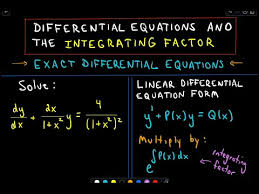 DIFFERENTIAL EQUATIONS AND
THE INTEGRATING FACTOR
→ EXACT DIFFERENTIAL EQUATIONS ←
Solve:
dy/dx + 2x/(1+x²) y = 4/(1+x²)²
LINEAR DIFFERENTIAL
EQUATION FORM
y' + P(x)y = Q(x)
Multiply by:
e^∫P(x)dx ← integrating
factor